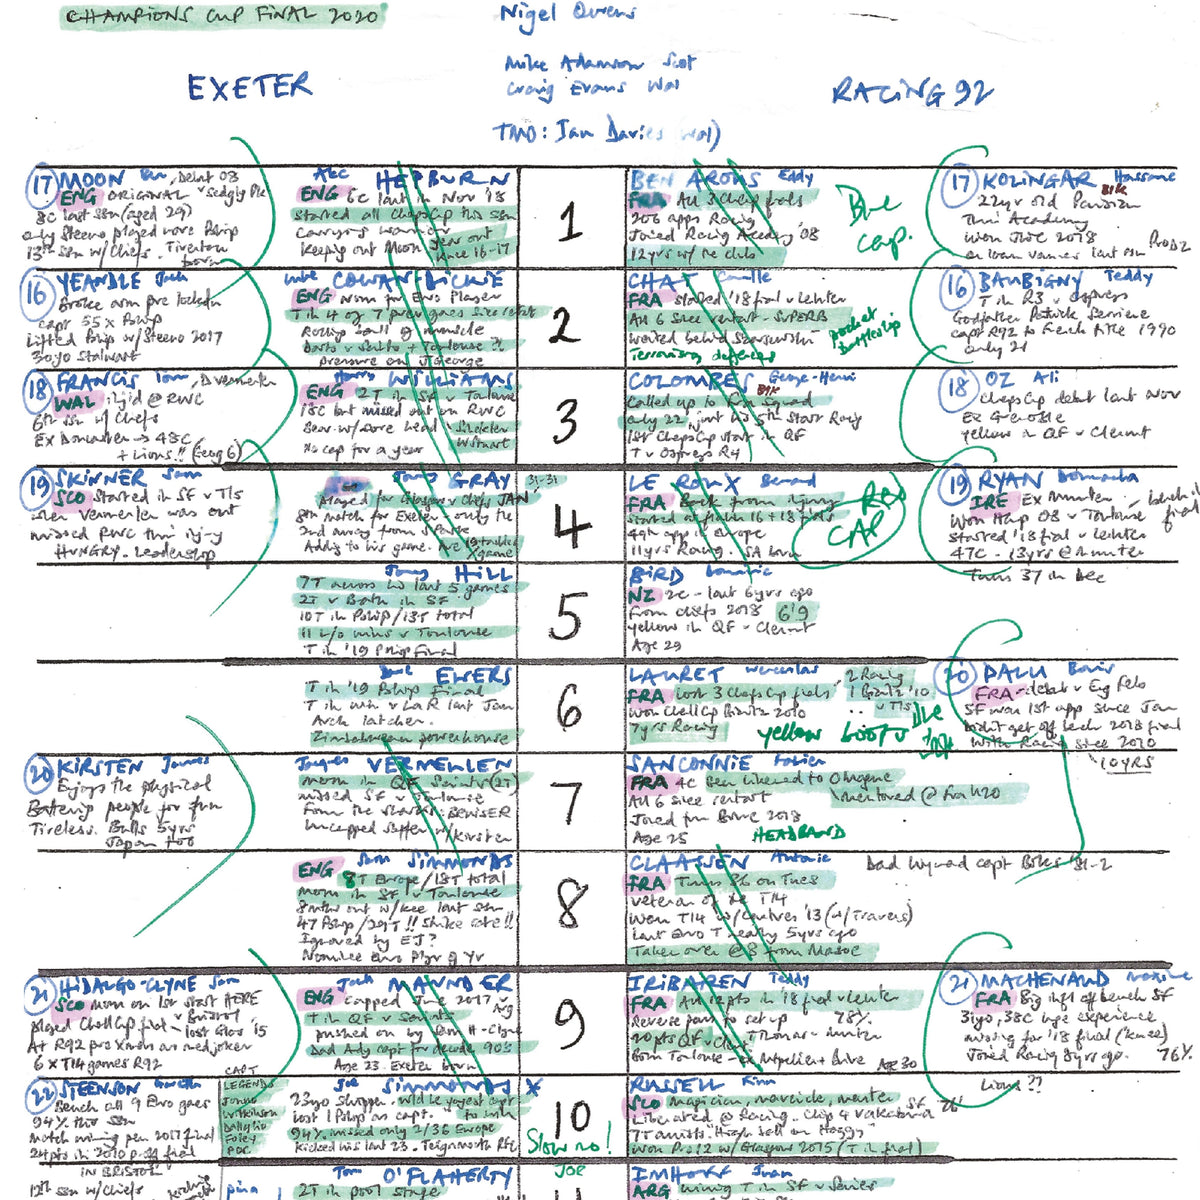 CHAMPIONS CUP FINAL 2020
Nigel Owens
Mike Adamson Scot
Craig Evans Wal
EXETER
RACING 92
TMO: Ian Davies (Wal)
17 MOON Ben, Debut 08
ENG ORIGINAL
8C last ssn (aged 29)
only Steeno played more Pship
13th ssn w/ Chiefs. Tiverton
born
Alec HEPBURN
ENG 6C last in Nov '18
started all ChapsCup this ssn
carrying warrior
Keeping out Moon
year out
1
BEN AROUS Eddy
FRA All 3 Chap fnls
206 apps Racing
Joined Racing Academy '08
12yrs w/ the club
Blue
cap.
17 KOLINGAR Hassane
22yr old Parisian
Thru Academy
Won JWC 2018
ProD2
16 YEANDLE Jack
Broke arm pre lockdn
capt 55 x Pship
Lifted Pship w/ Steeno 2017
30yo Stalwart
Luke COWAN-DICKIE
ENG Nom for Euro Player
T in 4 of 7 prev games since restart
Rolling ball of muscle
Darts v Saints + Toulouse ?!
pressure on J George
2
CHAT Camille
FRA started '18 final v Leinster
All 6 since restart - SUPERB
waited behind Szarzewski
Terrorising defences
pocket
battleship
16 BAUBIGNY Teddy
T in R3 v Ospreys
Godfather Patrick Serriere
capt R92 to French title 1990
only 21
18 FRANCIS Tom
WAL inj'd @ RWC
6th ssn w/ Chiefs
Ex Doncaster → 48C
+ Lions!! (Geog 6)
Harry WILLIAMS
ENG 2T in SF v Toulouse
18C but missed out on RWC
Bear w/ sore head
No cap for a year
3
COLOMBES George-Henri
Called up to Fra squad
only 22, just his 5th start Racing
1st ChapsCup start in QF
T v Ospreys R4
18 OZ Ali
ChapsCup debut last Nov
Ex Grenoble
Yellow in QF v Clermt
19 SKINNER Sam
SCO Started in SF v Tls
when Vermeulen was out
missed RWC thru inj-y
HUNGRY. Leadership
Jonny GRAY
31-31
Played for Glasgow v Chiefs JAN
8th match for Exeter - only the
2nd away from S Park
Adding to his game.
4
LE ROUX Bernard
FRA Back from injury
started in finals 16 + 18 finals
49th app in Europe
11yrs Racing. SA born
RED
CAP
19 RYAN Donnacha
IRE Ex Munster
Won HCup 08 v Toulouse
started '18 final v Leinster
47C - 13yrs @ Munster
Turns 37 in Dec
Jonny HILL
7T across his last 5 games
2T v Bath in SF
10T in Pship / 13T total
11 l/o wins v Toulouse
T in '19 Pship Final
5
BIRD Dominic
NZ 2C - last 6yrs ago
From Chiefs 2018 6'9
Yellow in QF v Clermt
Age 29
Dave EWERS
T in '19 Pship Final
T in win v LaR last Jan
Arch latcher.
Zimbabwean powerhouse
6
LAURET Wenceslas
FRA lost 3 ChapsCup finals
2 Racing
1 Biarritz '10
v Tls
Won ChallCup Biarritz 2010
7yrs Racing
yellow boots
20 PALU Boris
FRA - debut v Eng Feb
SF was 1st app since Jan
Didn't get off bench 2018 final
With Racing since 2010
10 YRS
20 KIRSTEN Jannes
Enjoys the physical
Battering people for fun
Tireless. Bulls 5yrs
Japan too
Jacques VERMEULEN
mom in QF v Saints (2T)
missed SF v Toulouse
From the Sharks. BRUISER
Uncapped Saffer w/ Kirsten
7
SANCONNIE Fabien
FRA 4C been likened to O'hagene
All 6 since restart
mentored @ Fra U20
Joined from Brive 2018
Age 25
HEADBAND
Sam SIMMONDS
ENG 8T Europe / 18T total
mom in SF v Toulouse
8mths out w/ knee last ssn
47 Pship / 29T !! Strike rate!!
Ignored by EJ?
Nominee Euro Plyr of Yr
8
CLAASSEN Antonie
Dad Wynand capt Boks 81-2
FRA Turns 36 on Tues
veteran of the T14
Won T14 w/ Castres '13 (w/ Travers)
last Euro T nearly 5yrs ago
Takes over @ 8 from Masoe
21 HIDALGO-CLYNE Sam
SCO mom on 1st start HERE
v Bristol
played ChallCup final - lost Glos '15
At R92 pre Xmas as med joker
6 x T14 games R92
Jack MAUNDER
ENG capped June 2017 v Arg
T in QF v Saints
pushed on by Sam H-Clyne
Dad Andy capt for decade 90's
Age 23. Exeter born
9
IRIBAREN Teddy
FRA All 12pts in '18 final v Leinster
Reverse pass to set up
78%
Thomas v Munster
20pts QF v Clermt
Born Toulouse - Ex Montpellier + Brive
Age 30
21 MACHENAUD Maxime
FRA Big infl off bench SF
31yo, 38C huge experience
missing for '18 final (knee)
Joined Racing 8yrs ago.
76%
Lions ??
22 STEENSON Gareth
Bench all 9 Euro games
94% this ssn
Match winning pen 2017 final
24pts in 2010 p-off final
IN BRISTOL
12th ssn w/ Chiefs
CAPT
LEGENDS
Jonno
Wilkinson
Dallaglio
Foley
POC
Joe SIMMONDS
23yo Skipper. Will be yngest capt
to win
Lost 1 Pship as capt.
94% missed only 2/36 Europe
Kicked his last 23. Teignmouth RFC
10
Slow no!
RUSSELL Finn
SCO magician, maverick, master
Liberated @ Racing. Chip 4 Vakatawa
SF 76'
7T assists "High Ball on Hoggy"
Won Pro12 w/ Glasgow 2015 (T in final)
Tom O'FLAHERTY
2T in pool stage
JOR
11
IMHOFF Juan
ARG winning T in SF v Saracens